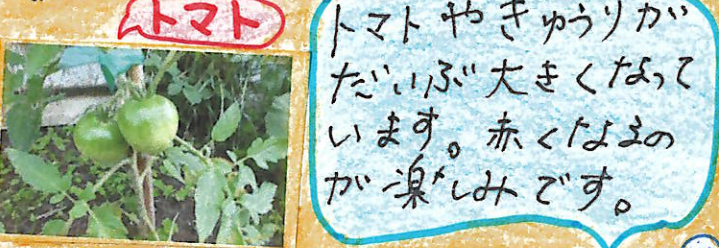 トマト
トマトやきゅうりが
だいぶ大きくなって
います。赤くなるの
が楽しみです。